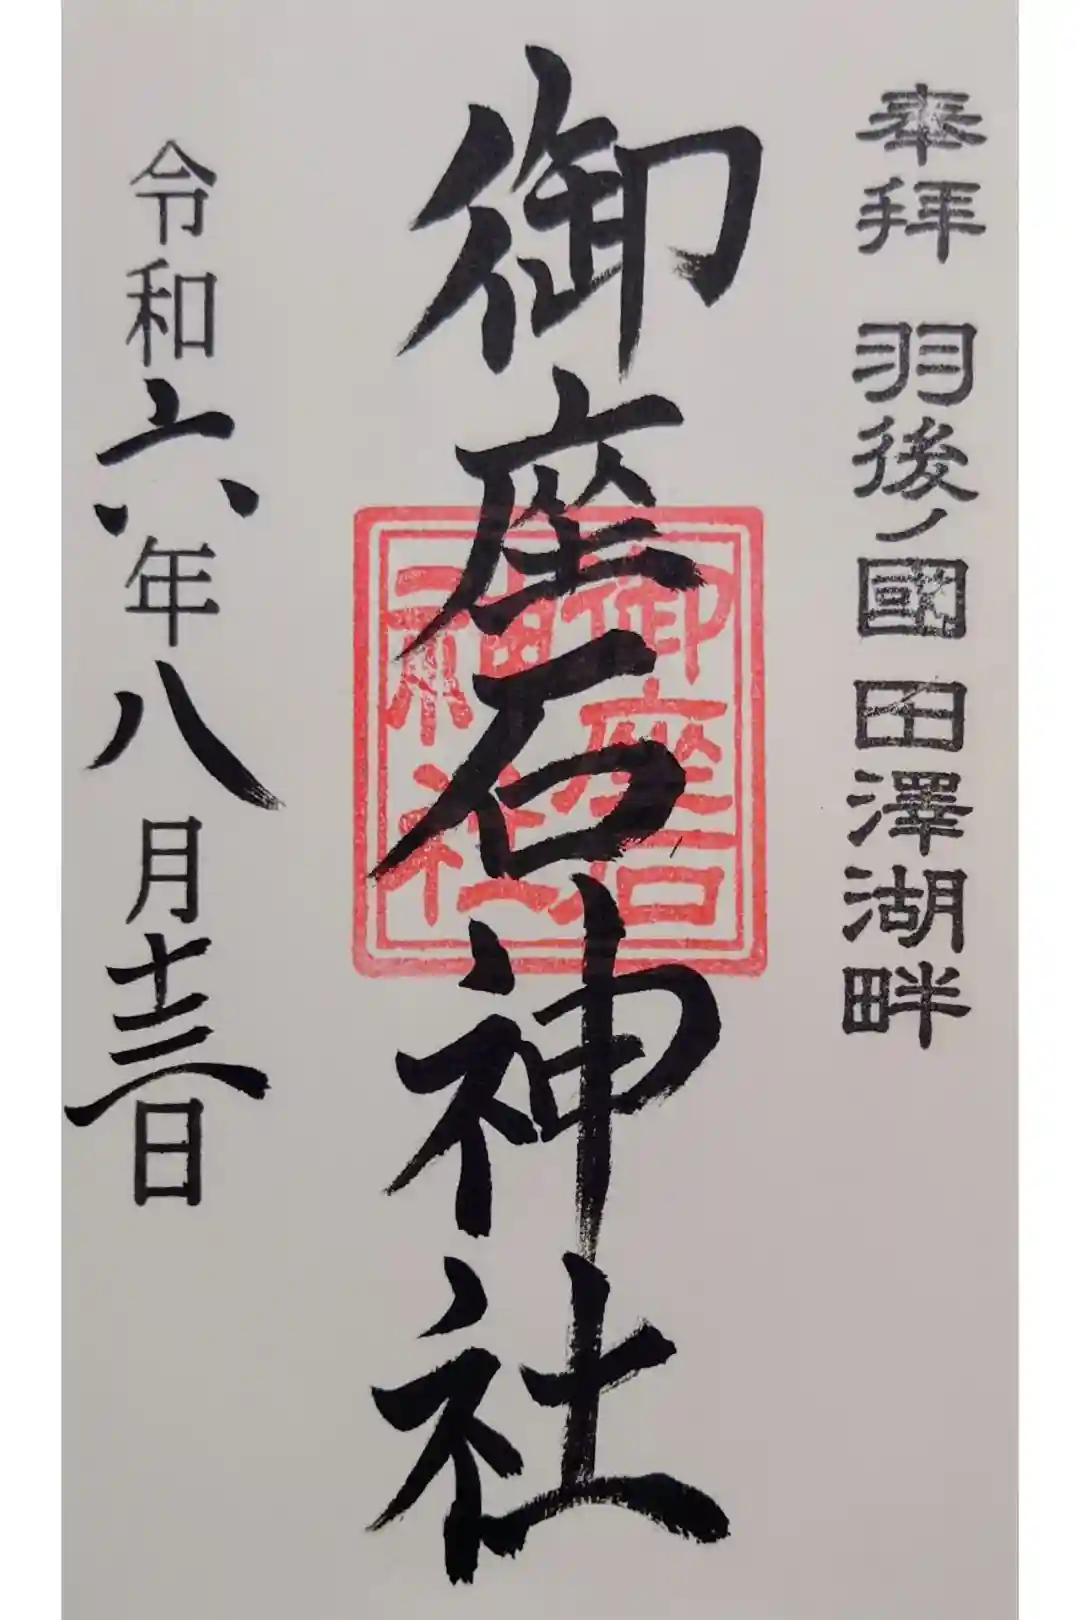 奉拜 羽後ノ國 田澤湖畔
御座石神社
御座石
神社
令和六年八月十三日